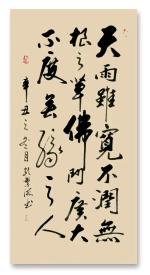 天雨雖寬不潤無
根之草佛門廣大
不度無緣之人
辛丑之冬月